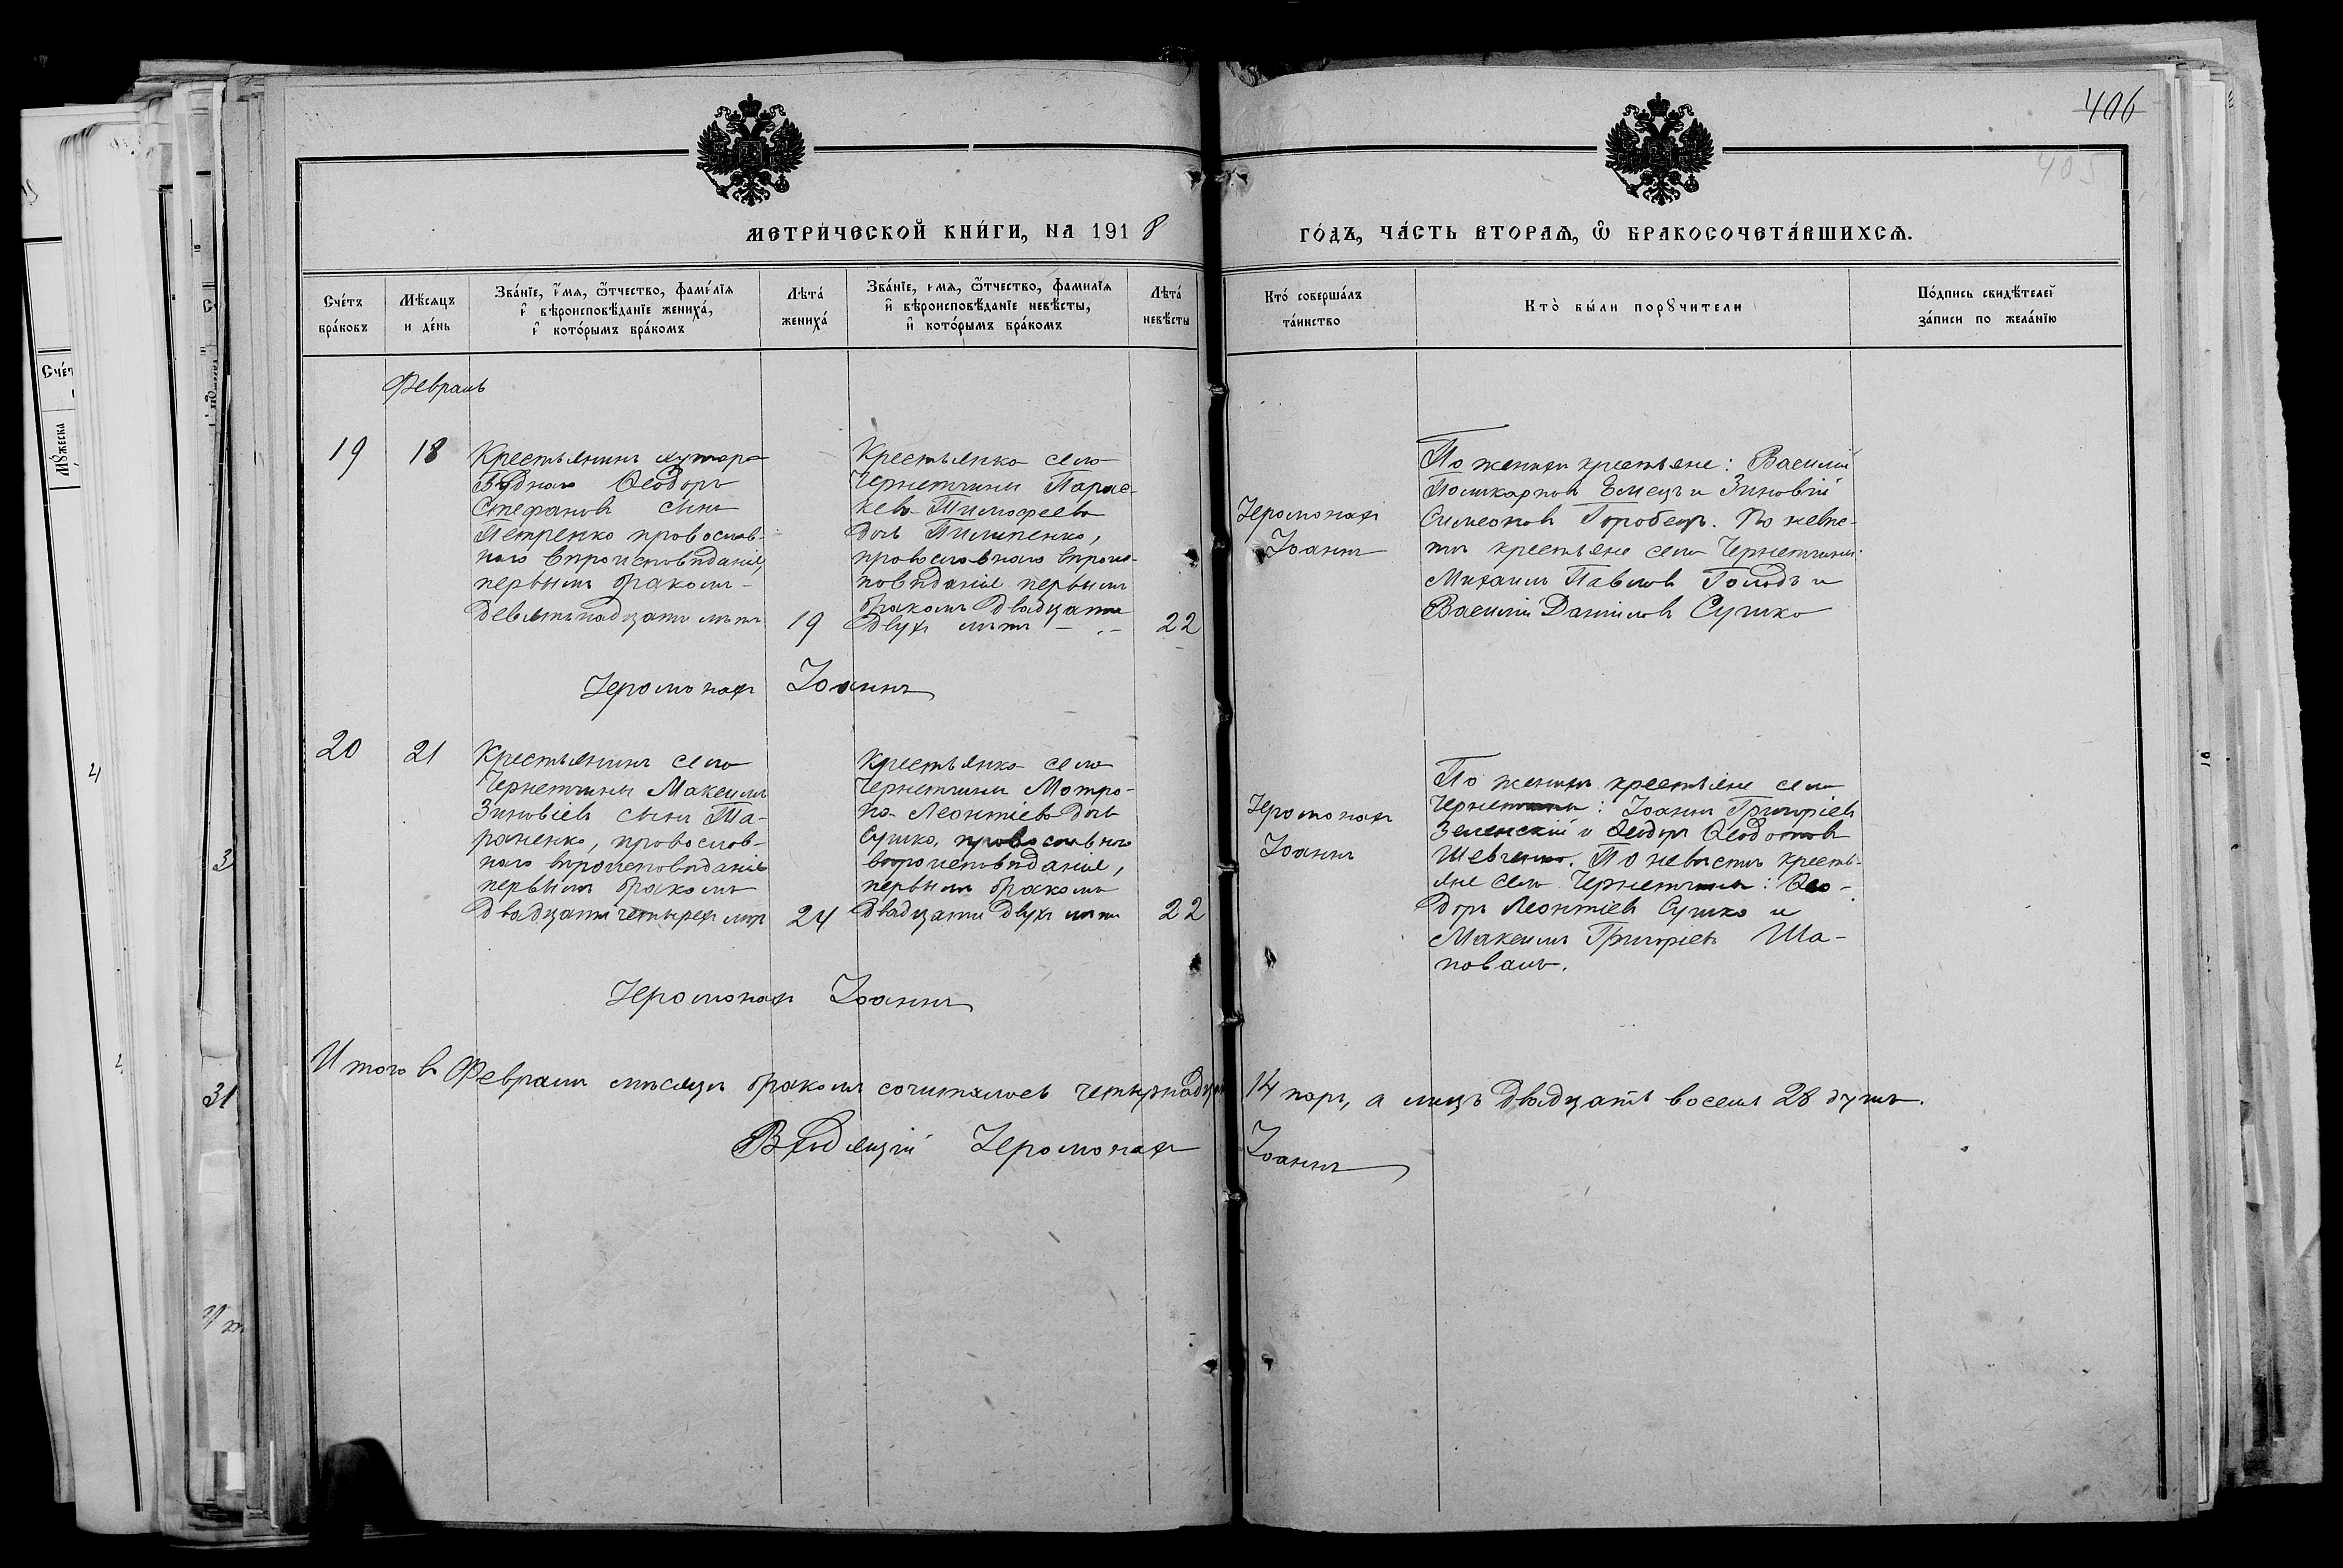 406
405
МЕТРИ́ЧЕСКОЙ КНИ́ГИ, НА 1918
ГО́ДЪ, ЧА́СТЬ ВТОРАѦ, Ѽ БРАКОСОЧЕТА́ВШИХСѦ.
Сче́тъ бра́ковъ
Мѣ́сѧцъ и де́нь
Зва́нїе, и҆́мѧ, ѻ҆́тчество, фами́лїѧ и҆ вѣроисповѣ́данїе жениха́, и҆ кото́рымъ бра́комъ
Лѣта́ жениха́
Зва́нїе, и҆́мѧ, ѻ҆́тчество, фами́лїѧ и҆ вѣроисповѣ́данїе невѣ́сты, и҆ кото́рымъ бра́комъ
Лѣта́ невѣ́сты
Кто́ соверша́лъ та́инство
Кто̀ бы́ли порꙋчи́тели
По́дпись свидѣ́телей за́писи по жела́нїю
Февраль
19
18
Крестьянинъ хутора
Ѳеодоръ
Стефановъ сынъ
Петренко православ-
наго вѣроисповѣданія,
первымъ бракомъ
девятнадцати лѣтъ
19
Крестьянка села
Чернетчины Парас-
кева Тимофеева
дочь Пилипенко,
православнаго вѣроис-
повѣданія первымъ
бракомъ двадцати
двухъ лѣтъ
22
Іеромонахъ
Іоаннъ
По женихѣ крестьяне: Василій
Поликарповъ Емецъ и Зиновій
Симеоновъ Горобецъ. По невѣс-
тѣ крестьяне села Чернетчины:
Михаилъ Павловъ Голодъ и
Василій Даніиловъ Сушко
Іеромонахъ Іоаннъ
20
21
Крестьянинъ села
Чернетчины Максимъ
Зиновіевъ сынъ Та-
раненко, православ-
наго вѣроисповѣданія
первымъ бракомъ
двадцати четырехъ лѣтъ
24
Крестьянка села
Чернетчины Мотро-
на Леонтіева дочь
Сушко, православнаго
вѣроисповѣданія,
первымъ бракомъ
двадцати двухъ лѣтъ
22
Іеромонахъ
Іоаннъ
По женихѣ крестьяне села
Чернетчины: Іоаннъ Григоріевъ
Зеленскій и Ѳеодоръ Ѳеодотовъ
Шевченко. По невѣстѣ кресть-
яне села Чернетчины: Ѳео-
доръ Леонтіевъ Сушко и
Максимъ Григоріевъ Ша-
повалъ.
Іеромонахъ Іоаннъ
Итого въ Февралѣ мѣсяцѣ бракомъ сочиталось четырнадцать 14 паръ, а лицъ двадцать восемь 28 душъ.
Іеромонахъ Іоаннъ